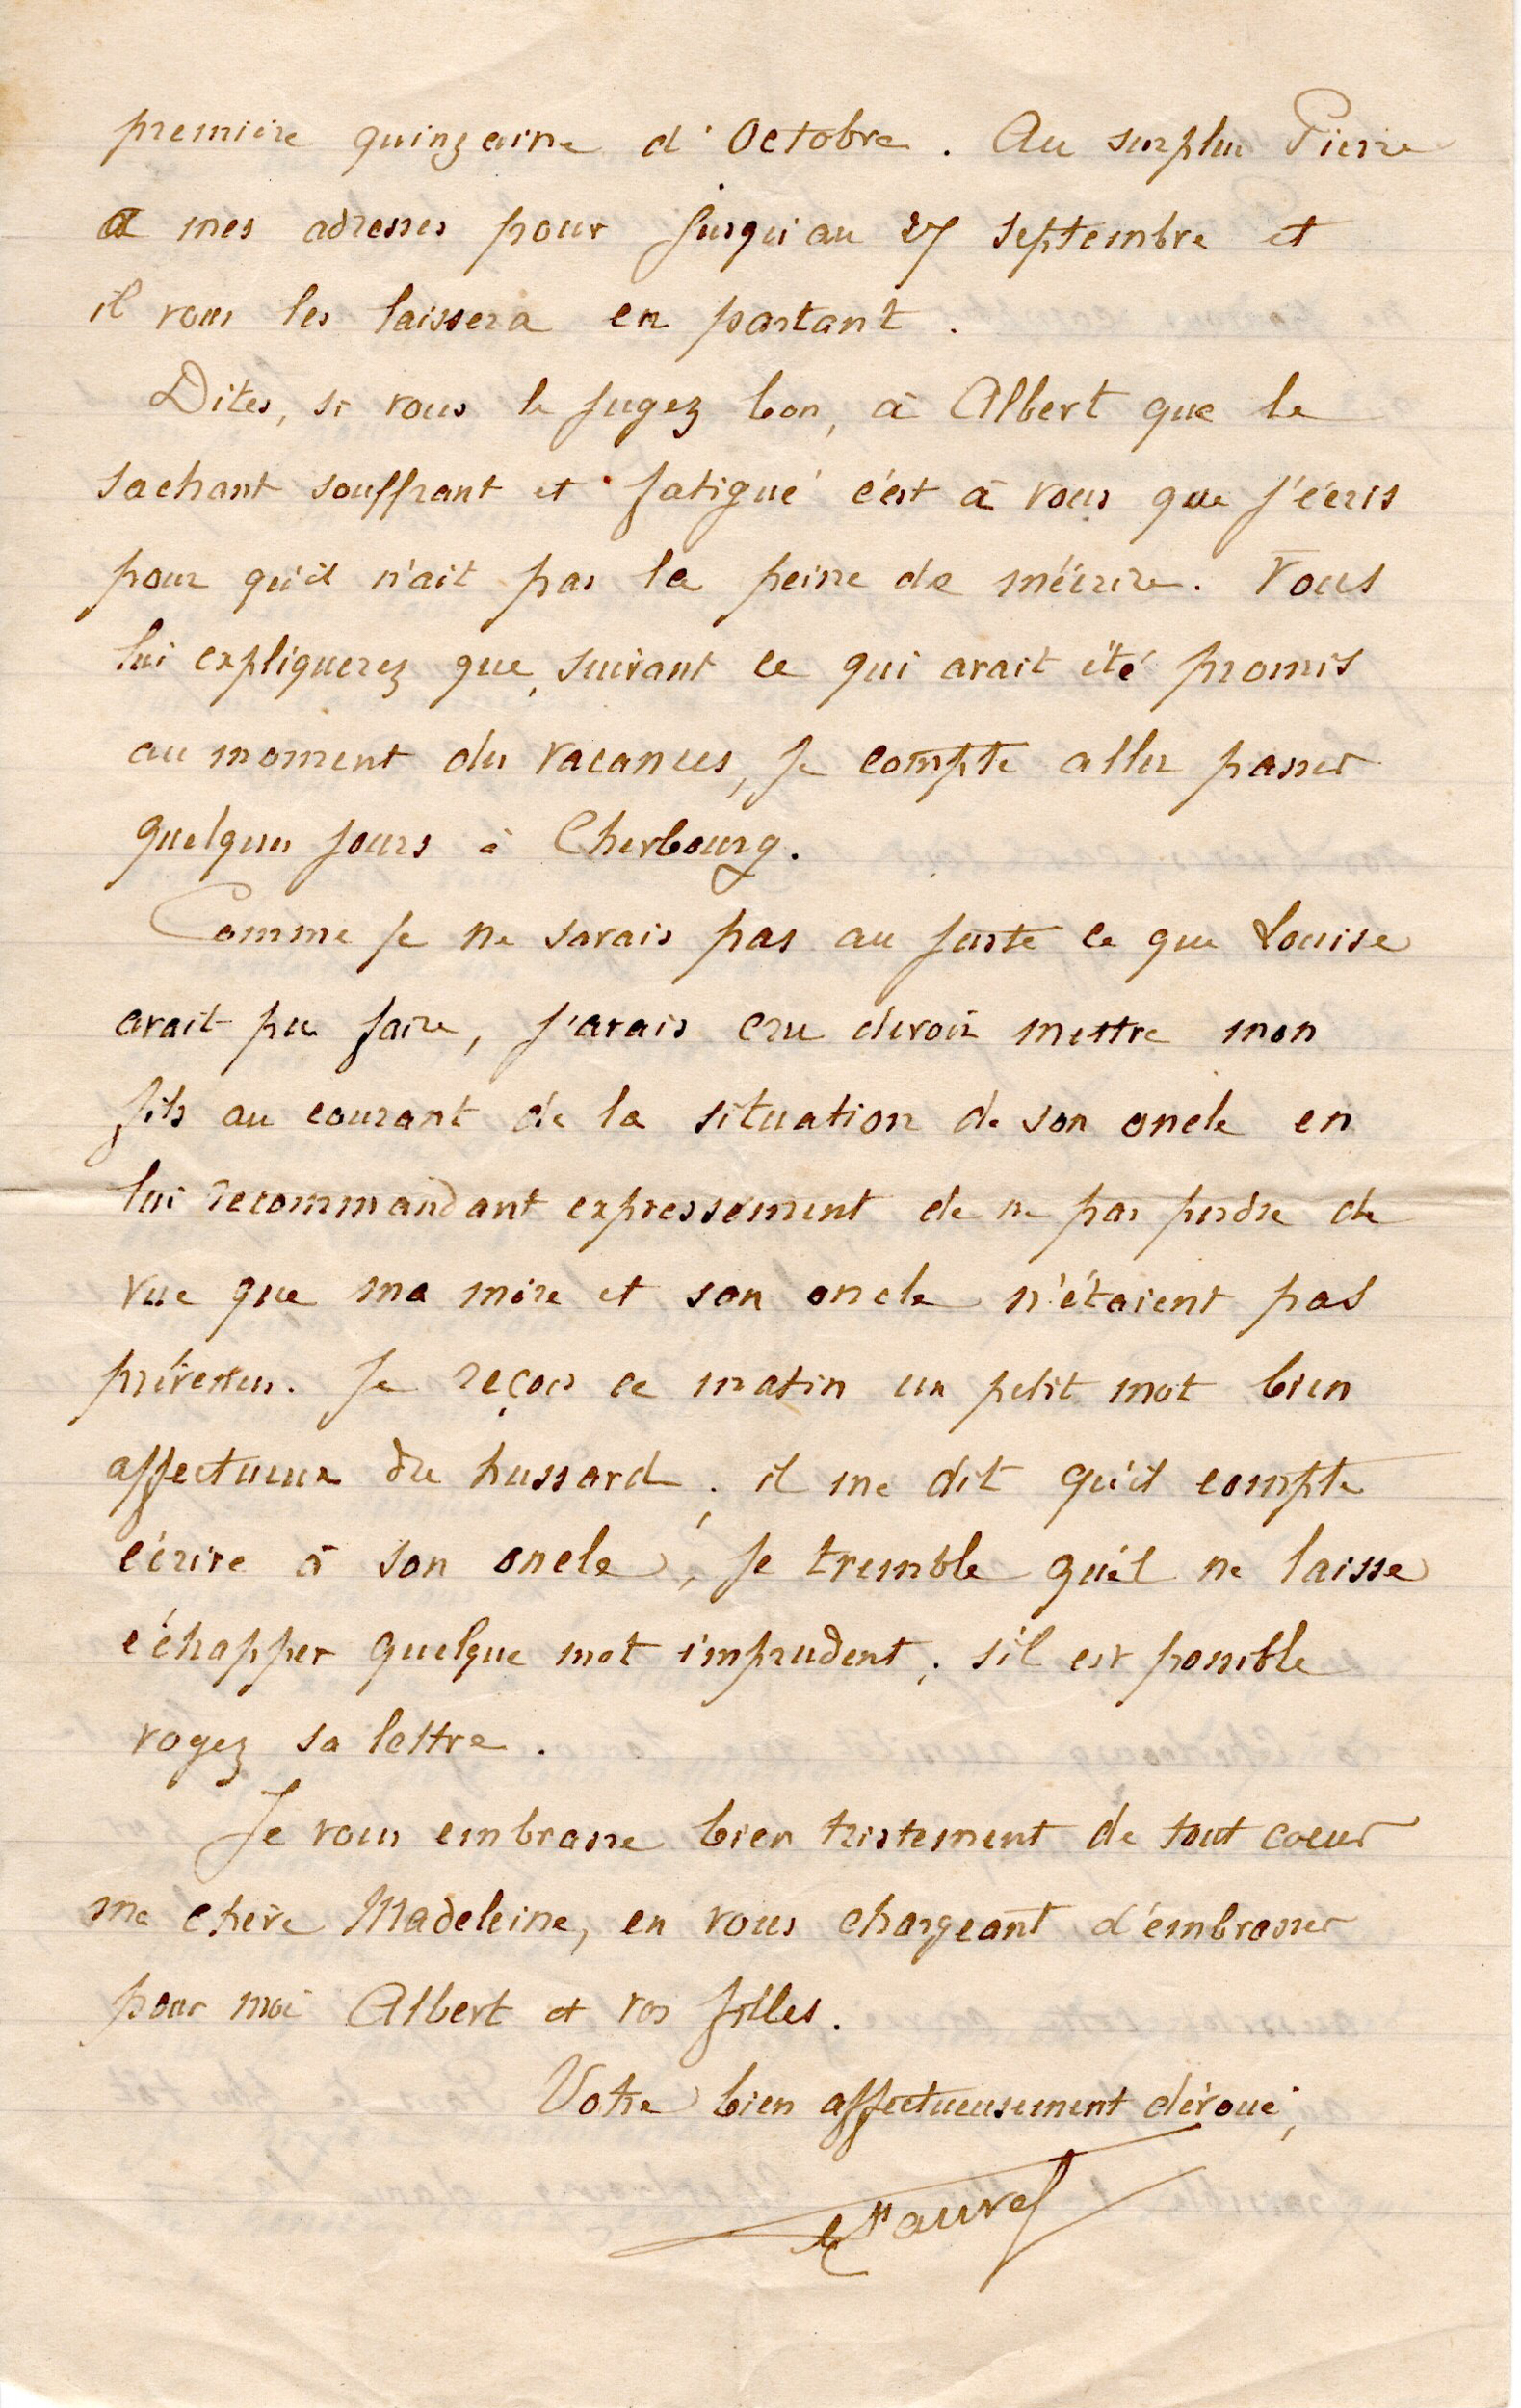 première quinzaine d'Octobre. Au surplus Pierre
a mes adresses pour jusqu'au 27 septembre et
il vous les laissera en partant.
Dites, si vous le jugez bon, à Albert que le
sachant souffrant et fatigué c'est à vous que j'écris
pour qu'il n'ait pas la peine de m'écrire. Vous
lui expliquerez que, suivant ce qui avait été promis
au moment des vacances, je compte aller passer
quelques jours à Cherbourg.
Comme je ne savais pas au juste ce que Louise
avait pu faire, j'avais cru devoir mettre mon
fils au courant de la situation de son oncle en
lui recommandant expressément de ne pas perdre de
vue que ma mère et son oncle n'étaient pas
prévenus. Je reçois ce matin un petit mot bien
affectueux du hussard ; il me dit qu'il compte
écrire à son oncle ; je tremble qu'il ne laisse
échapper quelque mot imprudent ; s'il est possible
voyez sa lettre.
Je vous embrasse bien tristement de tout coeur
ma chère Madeleine, en vous chargeant d'embrasser
pour moi Albert et vos filles.
Votre bien affectueusement dévoué,